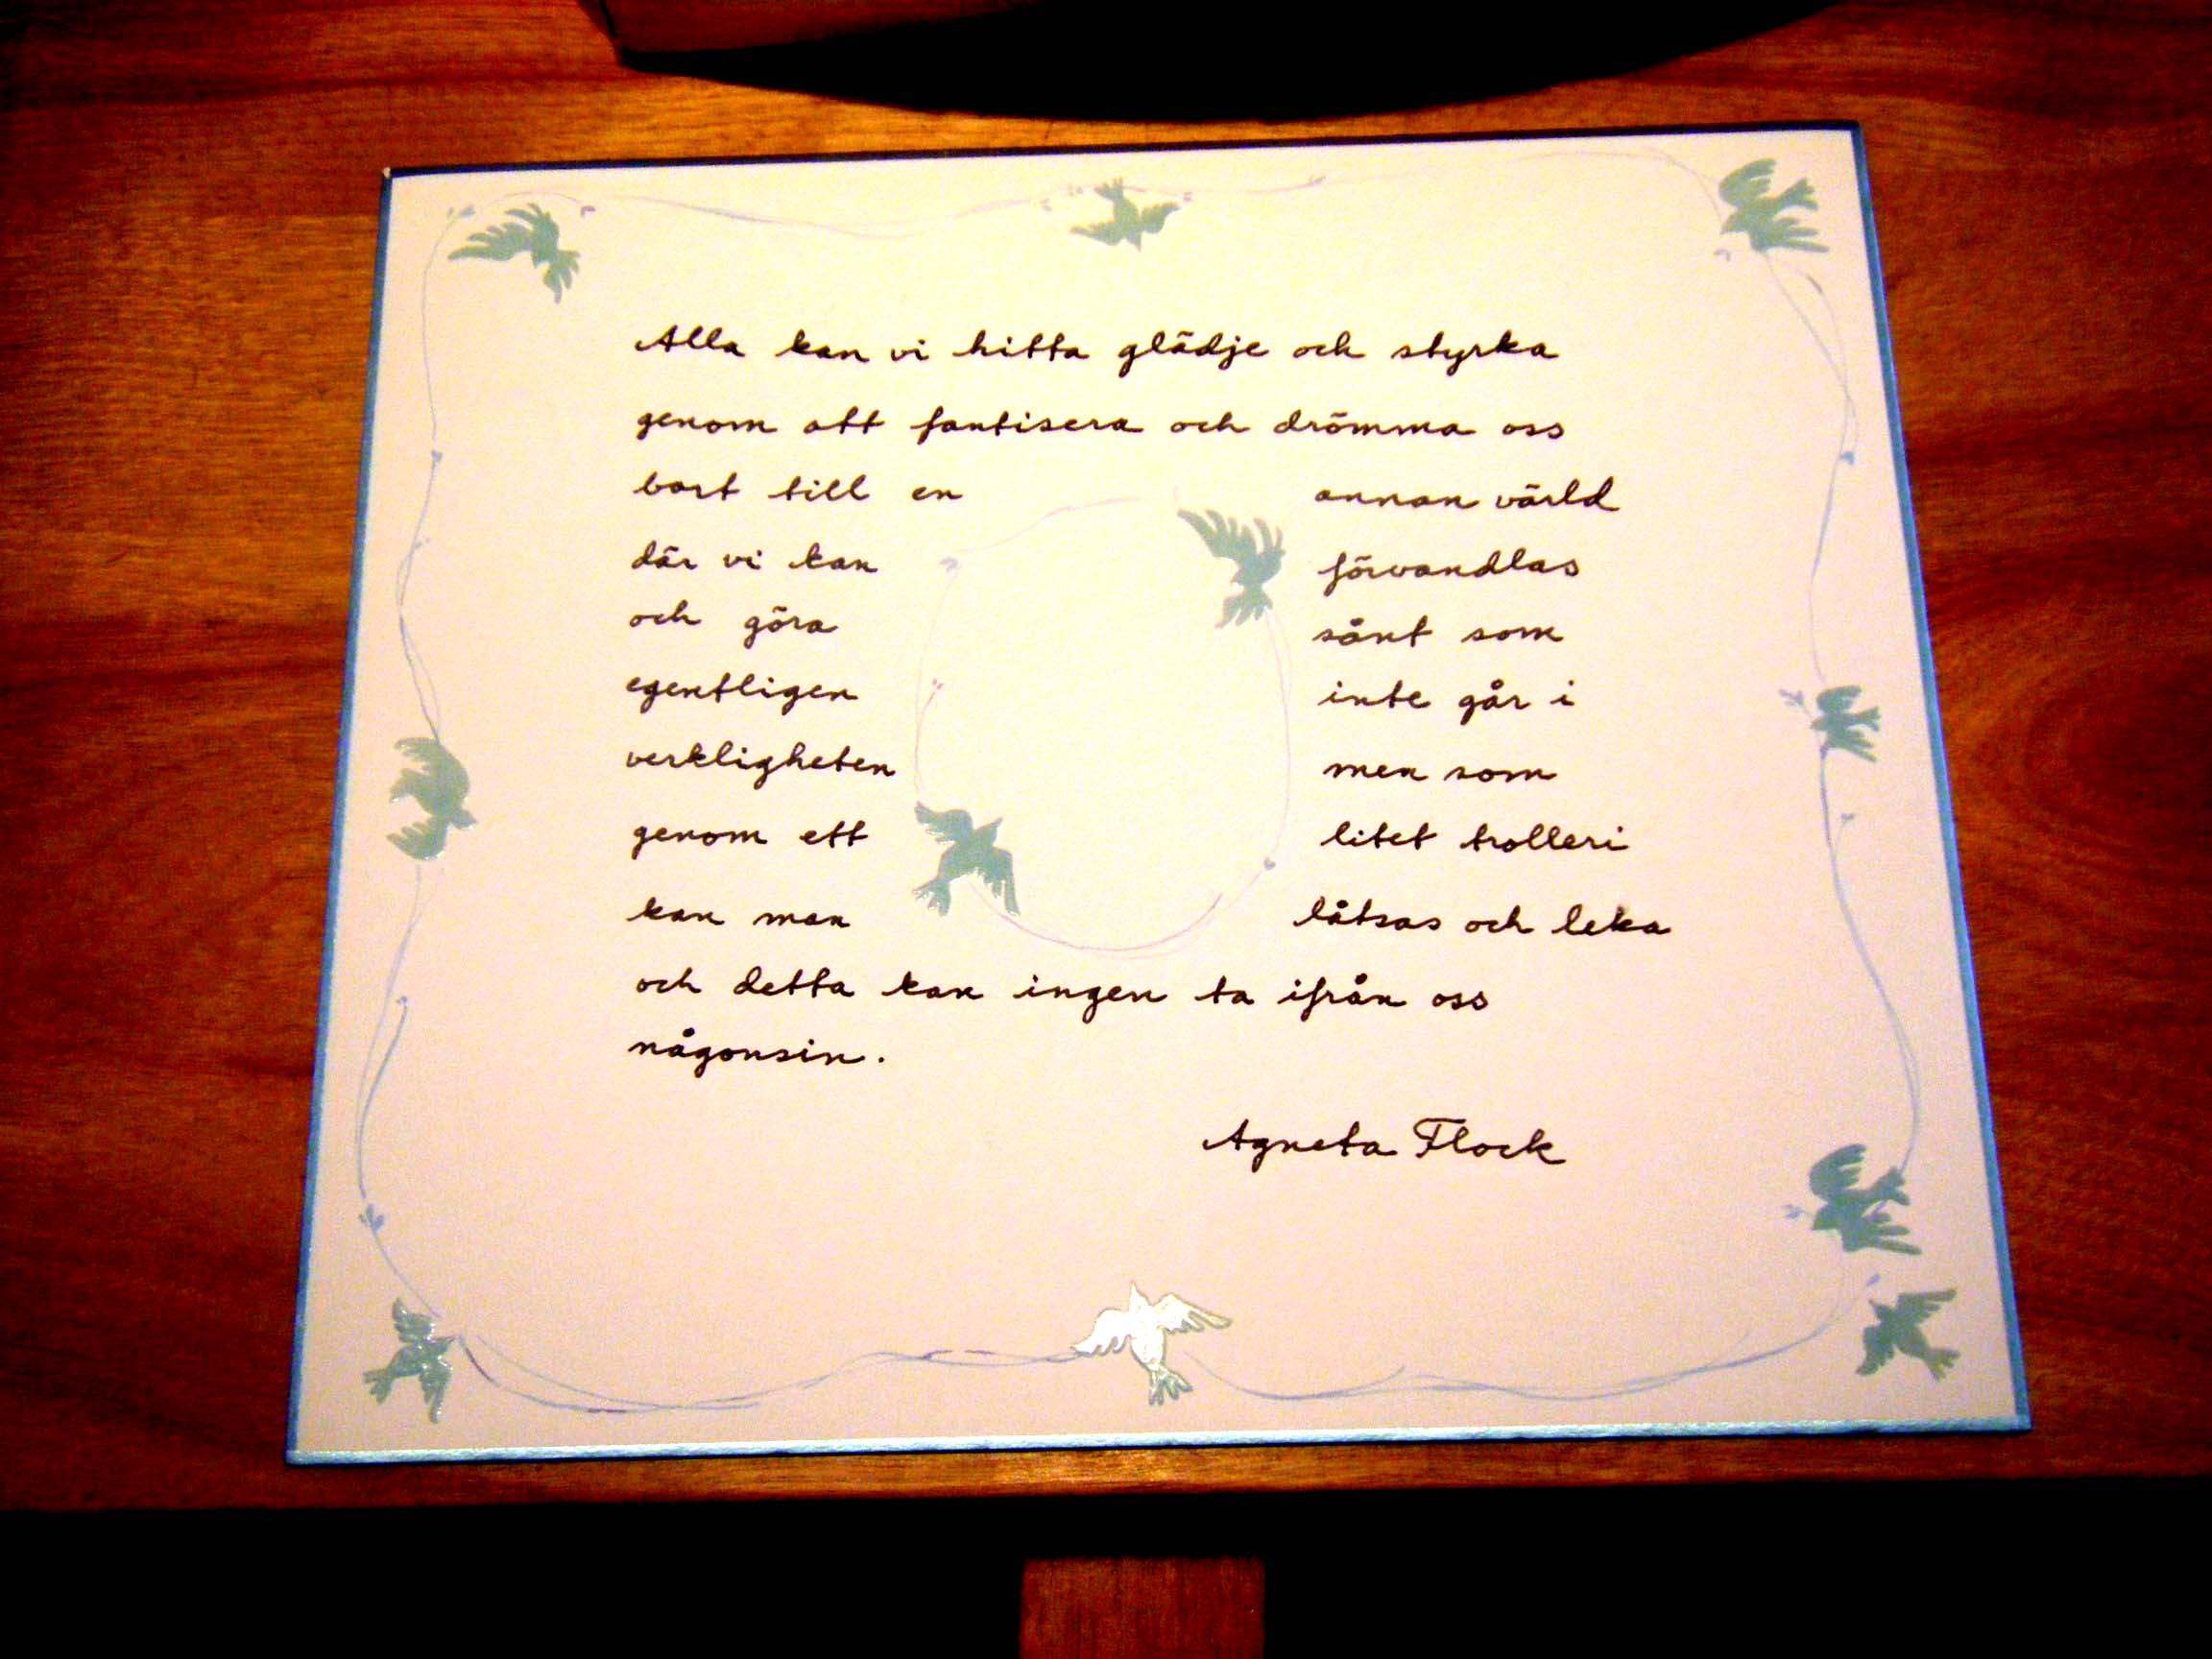 Alla kan vi hitta glädje och styrka
genom att fantisera och drömma oss
bort till en annan värld
där vi kan förvandlas
och göra sånt som
egentligen inte går i
verkligheten men som
genom ett litet trolleri
kan man låtsas och leka
och detta kan ingen ta ifrån oss
någonsin.
Agneta Flock